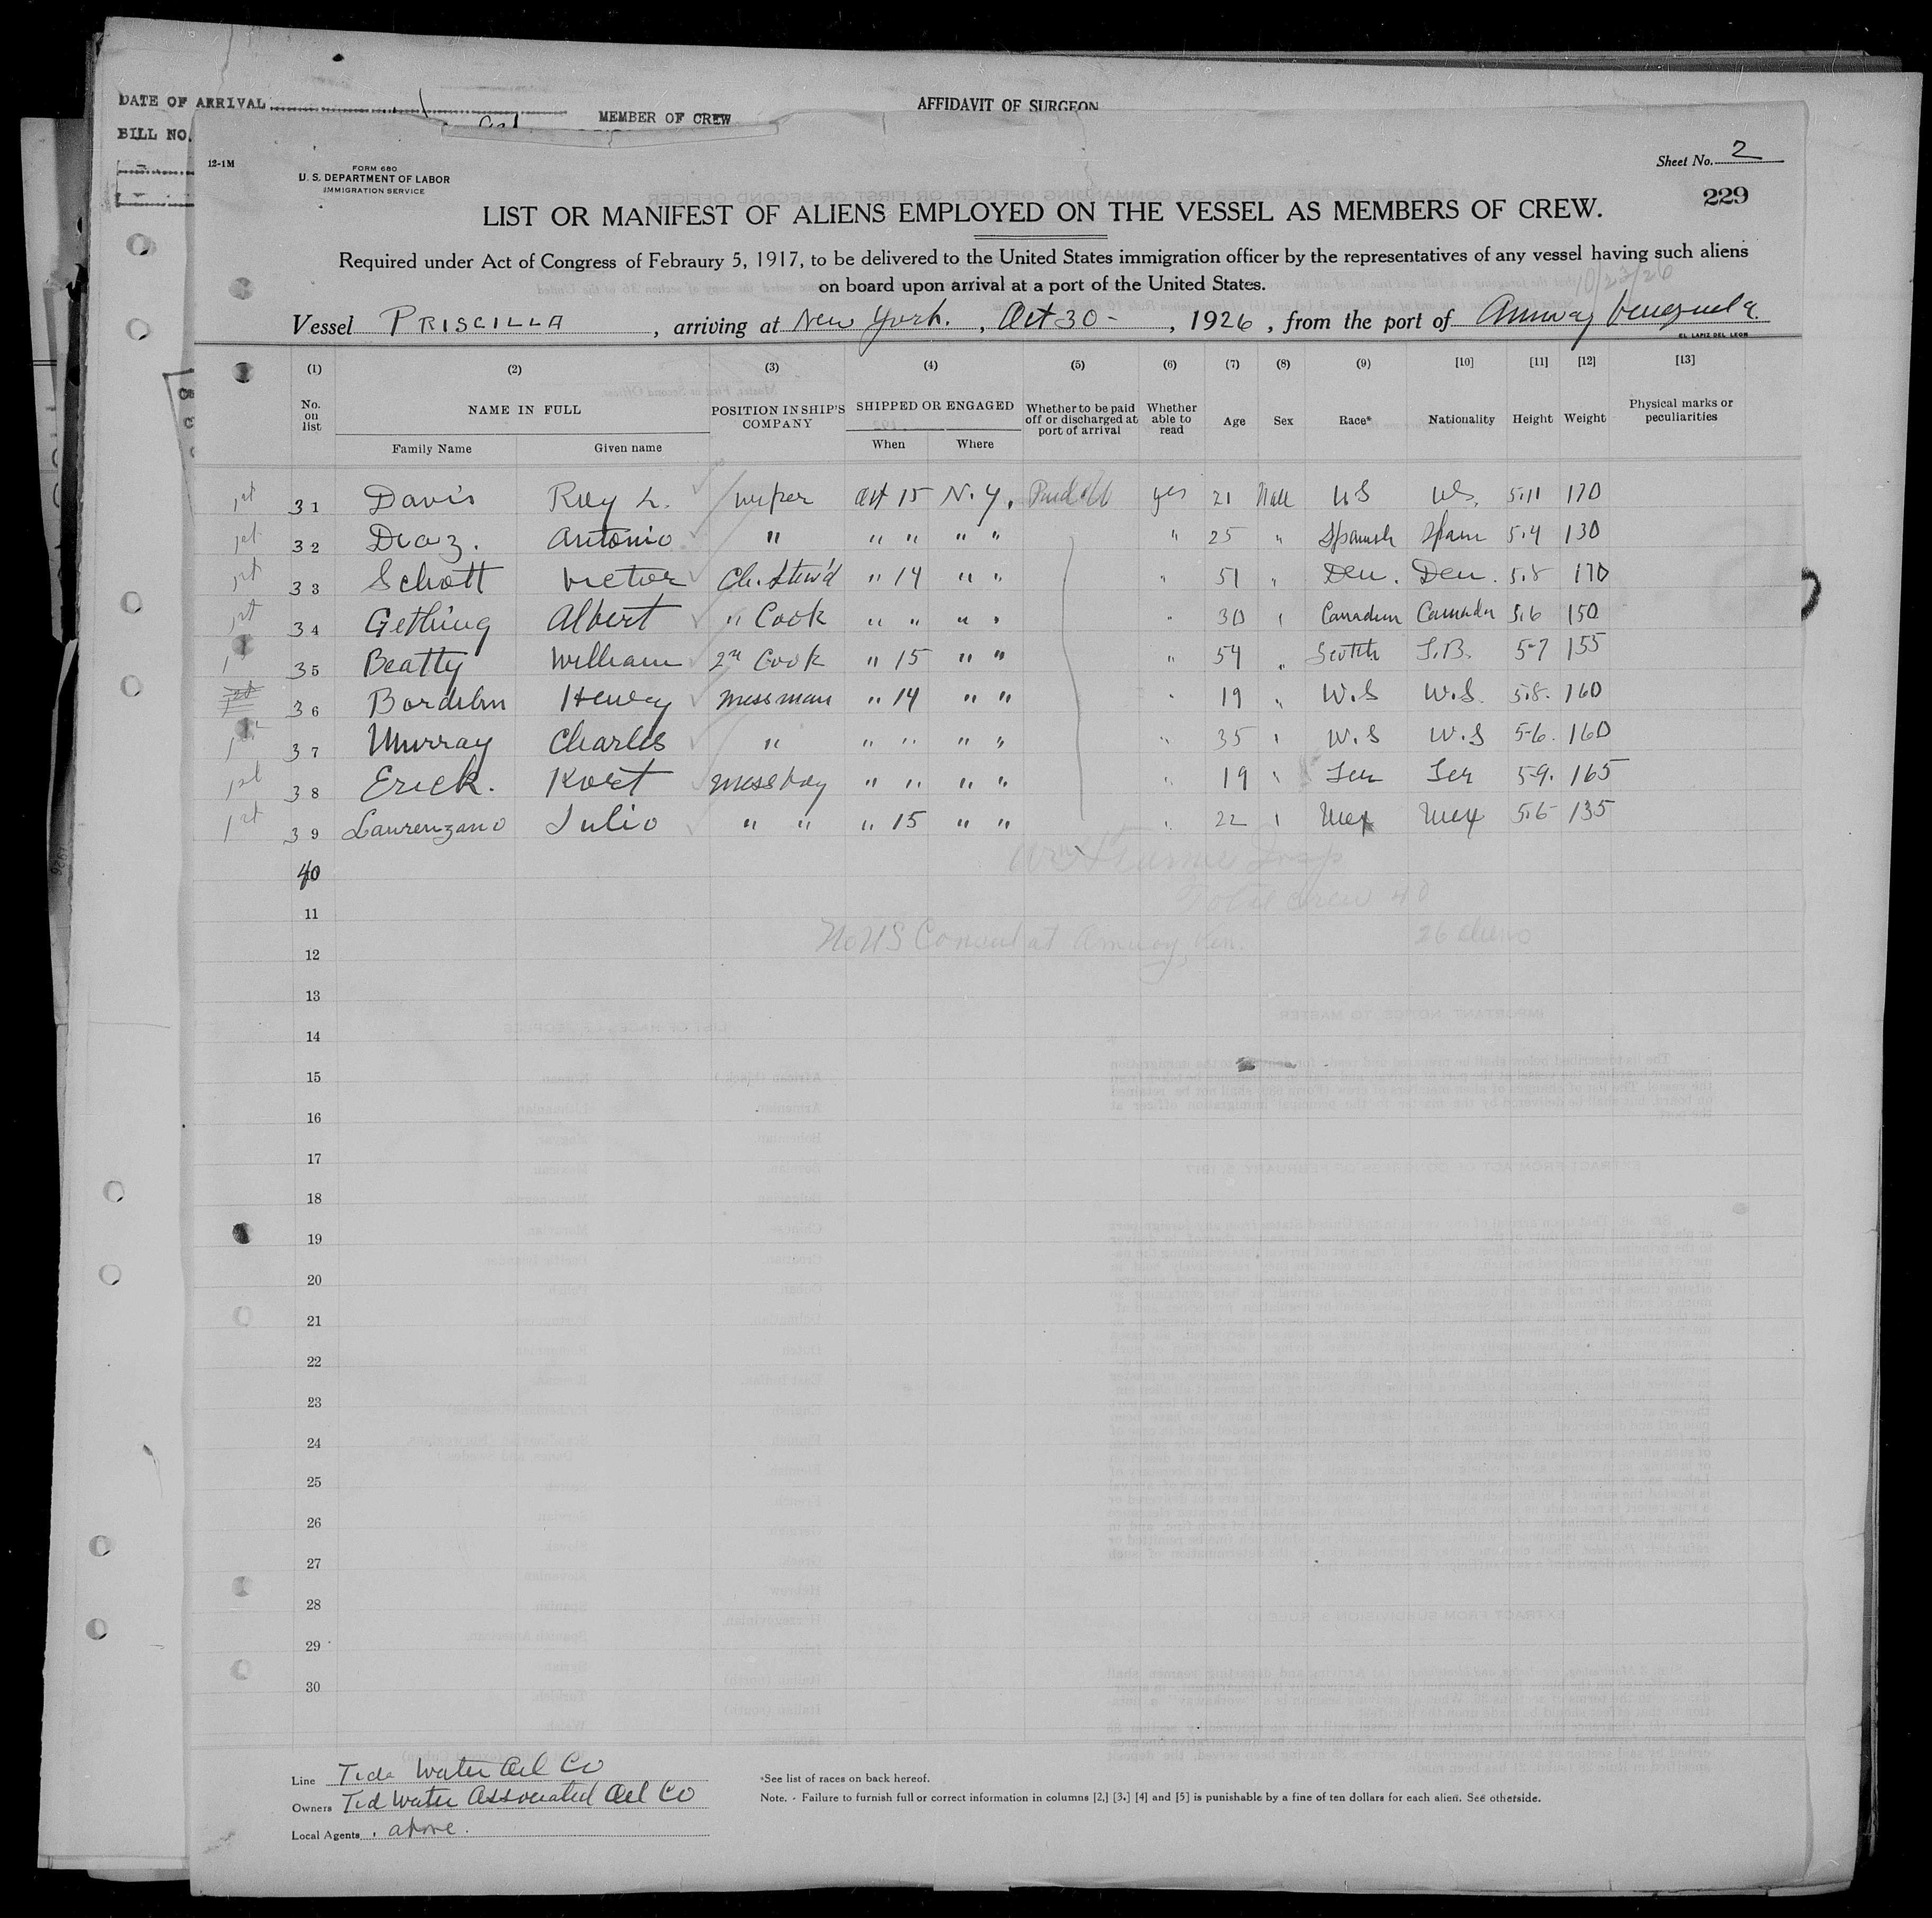 DATE OF ARRIVAL
MEMBER OF CREW
AFFIDAVIT OF SURGEON
BILL NO.
12-1M
FORM 680
U. S. DEPARTMENT OF LABOR
IMMIGRATION SERVICE
Sheet No. 2
229
LIST OR MANIFEST OF ALIENS EMPLOYED ON THE VESSEL AS MEMBERS OF CREW.
Required under Act of Congress of Febraury 5, 1917, to be delivered to the United States immigration officer by the representatives of any vessel having such aliens
on board upon arrival at a port of the United States.
10/23/26
Vessel PRISCILLA, arriving at New York., Oct 30 -, 1926, from the port of Amuay Venezuela.
EL LAPIZ DEL LEON
(1) (2) (3) (4) (5) (6) (7) (8) (9) [10] [11] [12] [13]
No. on list NAME IN FULL POSITION IN SHIP'S COMPANY SHIPPED OR ENGAGED Whether to be paid off or discharged at port of arrival Whether able to read Age Sex Race* Nationality Height Weight Physical marks or peculiarities
Family Name Given name When Where
1st 31 Davis Roy L. wiper Oct 15 N.Y. Paid off yes 21 Male US US. 5.11 170
1st 32 Diaz. Antonio " " " " " " 25 " Spanish Spain 5.4 130
1st 33 Schott Victor Ch. Stew'd " 14 " " " 51 " Den. Den. 5.8 170
1st 34 Gething Albert " Cook " " " " " 30 " Canadian Canada 5.6 150
1st 35 Beatty William 2nd Cook " 15 " " " 54 " Scotch G.B. 5-7 155
1st 36 Bordelon Henry messman " 14 " " " 19 " U.S U.S. 5.8. 160
1st 37 Murray Charles " " " " " " 35 " U.S U.S 5-6. 160
1st 38 Erick. Kort messboy " " " " " 19 " Ger Ger 5-9. 165
1st 39 Laurenzano Julio " " " 15 " " " 22 " Mex Mex 5.6 135
40
Insp
Total crew 40
11
No US Consul at Amuay, Ven. 26 aliens
12
13
14
15
16
17
18
19
20
21
22
23
24
25
26
27
28
29
30
Line Tide Water Oil Co
Owners Tid Water Associated Oil Co
Local Agents, above.
*See list of races on back hereof.
Note. - Failure to furnish full or correct information in columns [2,] [3,] [4] and [5] is punishable by a fine of ten dollars for each alien. See otherside.